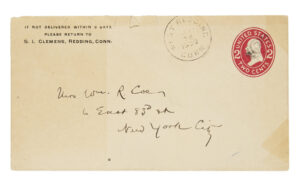 IF NOT DELIVERED WITHIN 5 DAYS
PLEASE RETURN TO
S. L. CLEMENS, REDDING, CONN.
REDDING
CONN
UNITED STATES
2 2
TWO CENTS
Mrs Wm. R Coe
6 East 83rd St
New York City